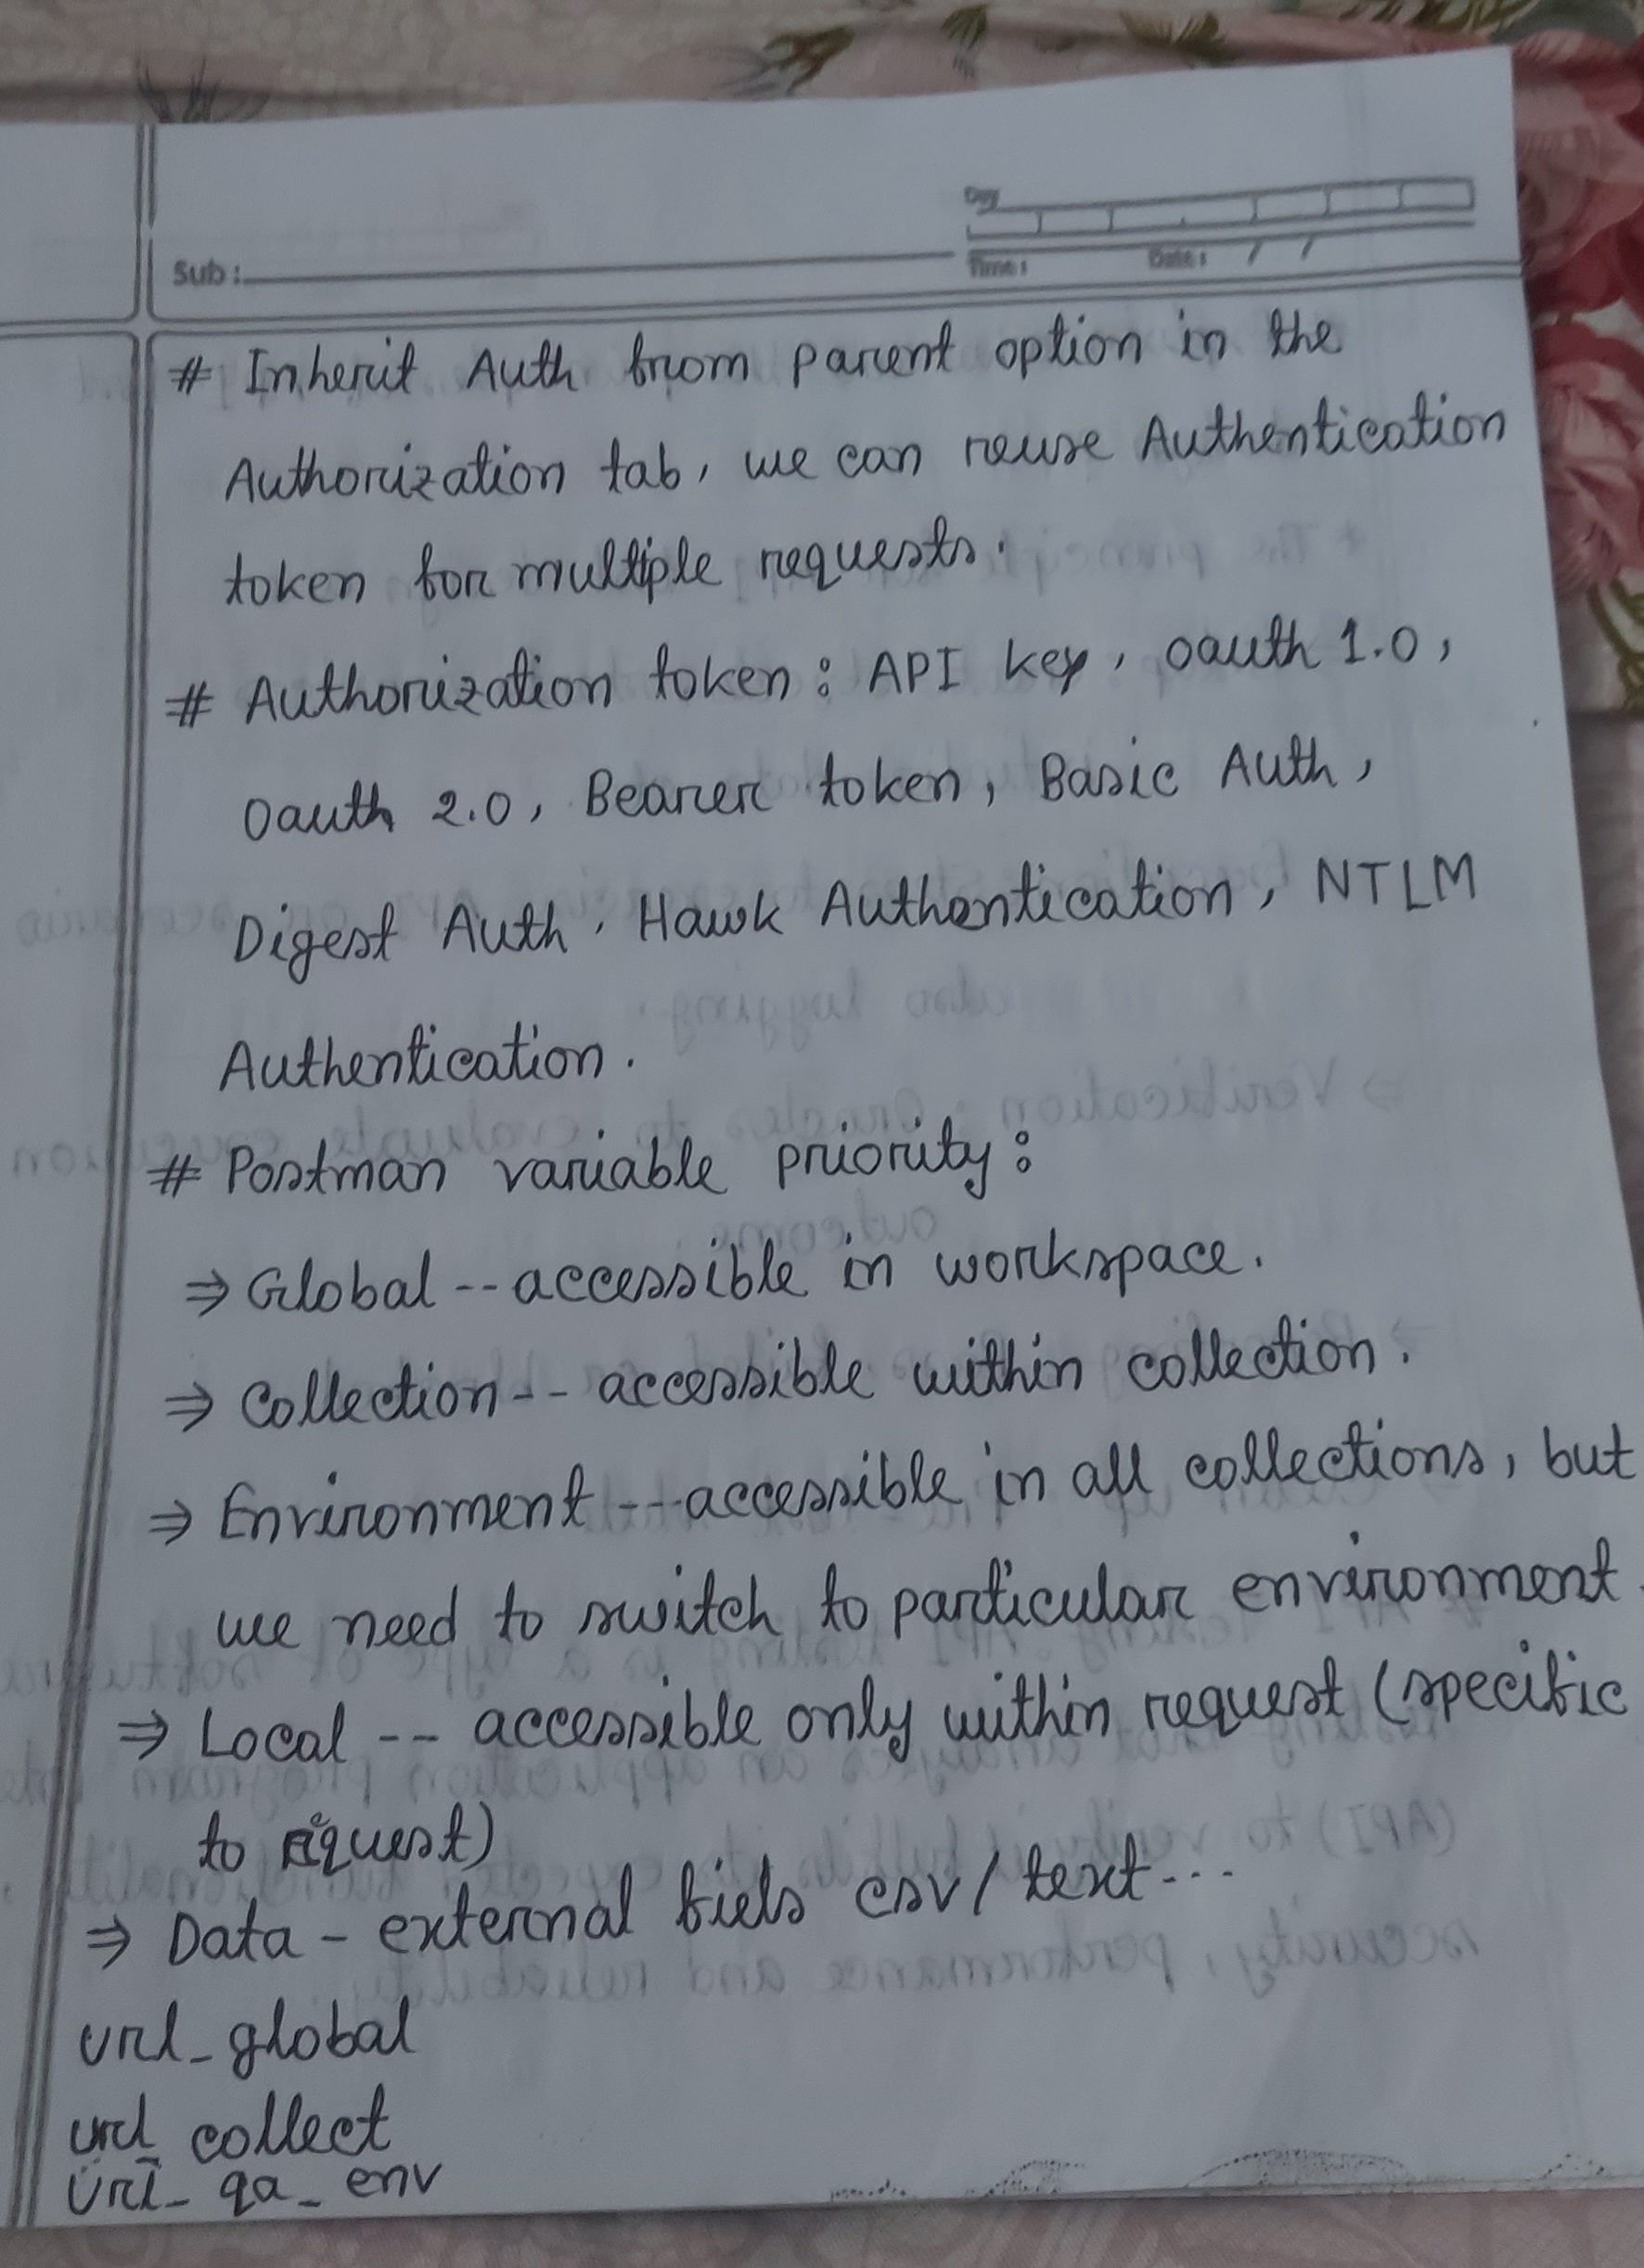 Day
Sub:
Time: Date: / /
# Inherit Auth from parent option in the
Authorization tab, we can reuse Authentication
token for multiple requests.
# Authorization token: API key, oauth 1.0,
Oauth 2.0, Bearer token, Basic Auth,
Digest Auth, Hawk Authentication, NTLM
Authentication.
# Postman variable priority:
⇒ Global -- accessible in workspace.
⇒ Collection -- accessible within collection.
⇒ Environment --- accessible in all collections, but
we need to switch to particular environment.
⇒ Local -- accessible only within request (specific
to request)
⇒ Data - external fiels csv / text...
url_global
url_collect
url_qa_env